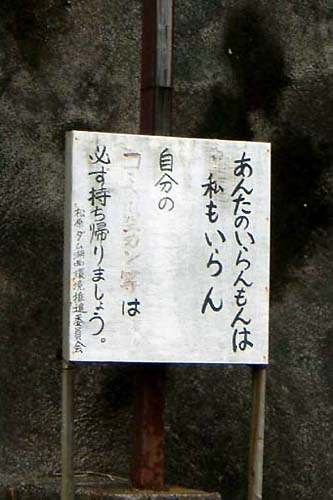 あんたのいらんもんは
私もいらん
自分の
ゴミ・空カン等は
必ず持ち帰りましょう。
松原ダム湖面環境推進委員会